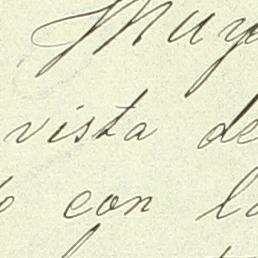 Muy
vista de
con la